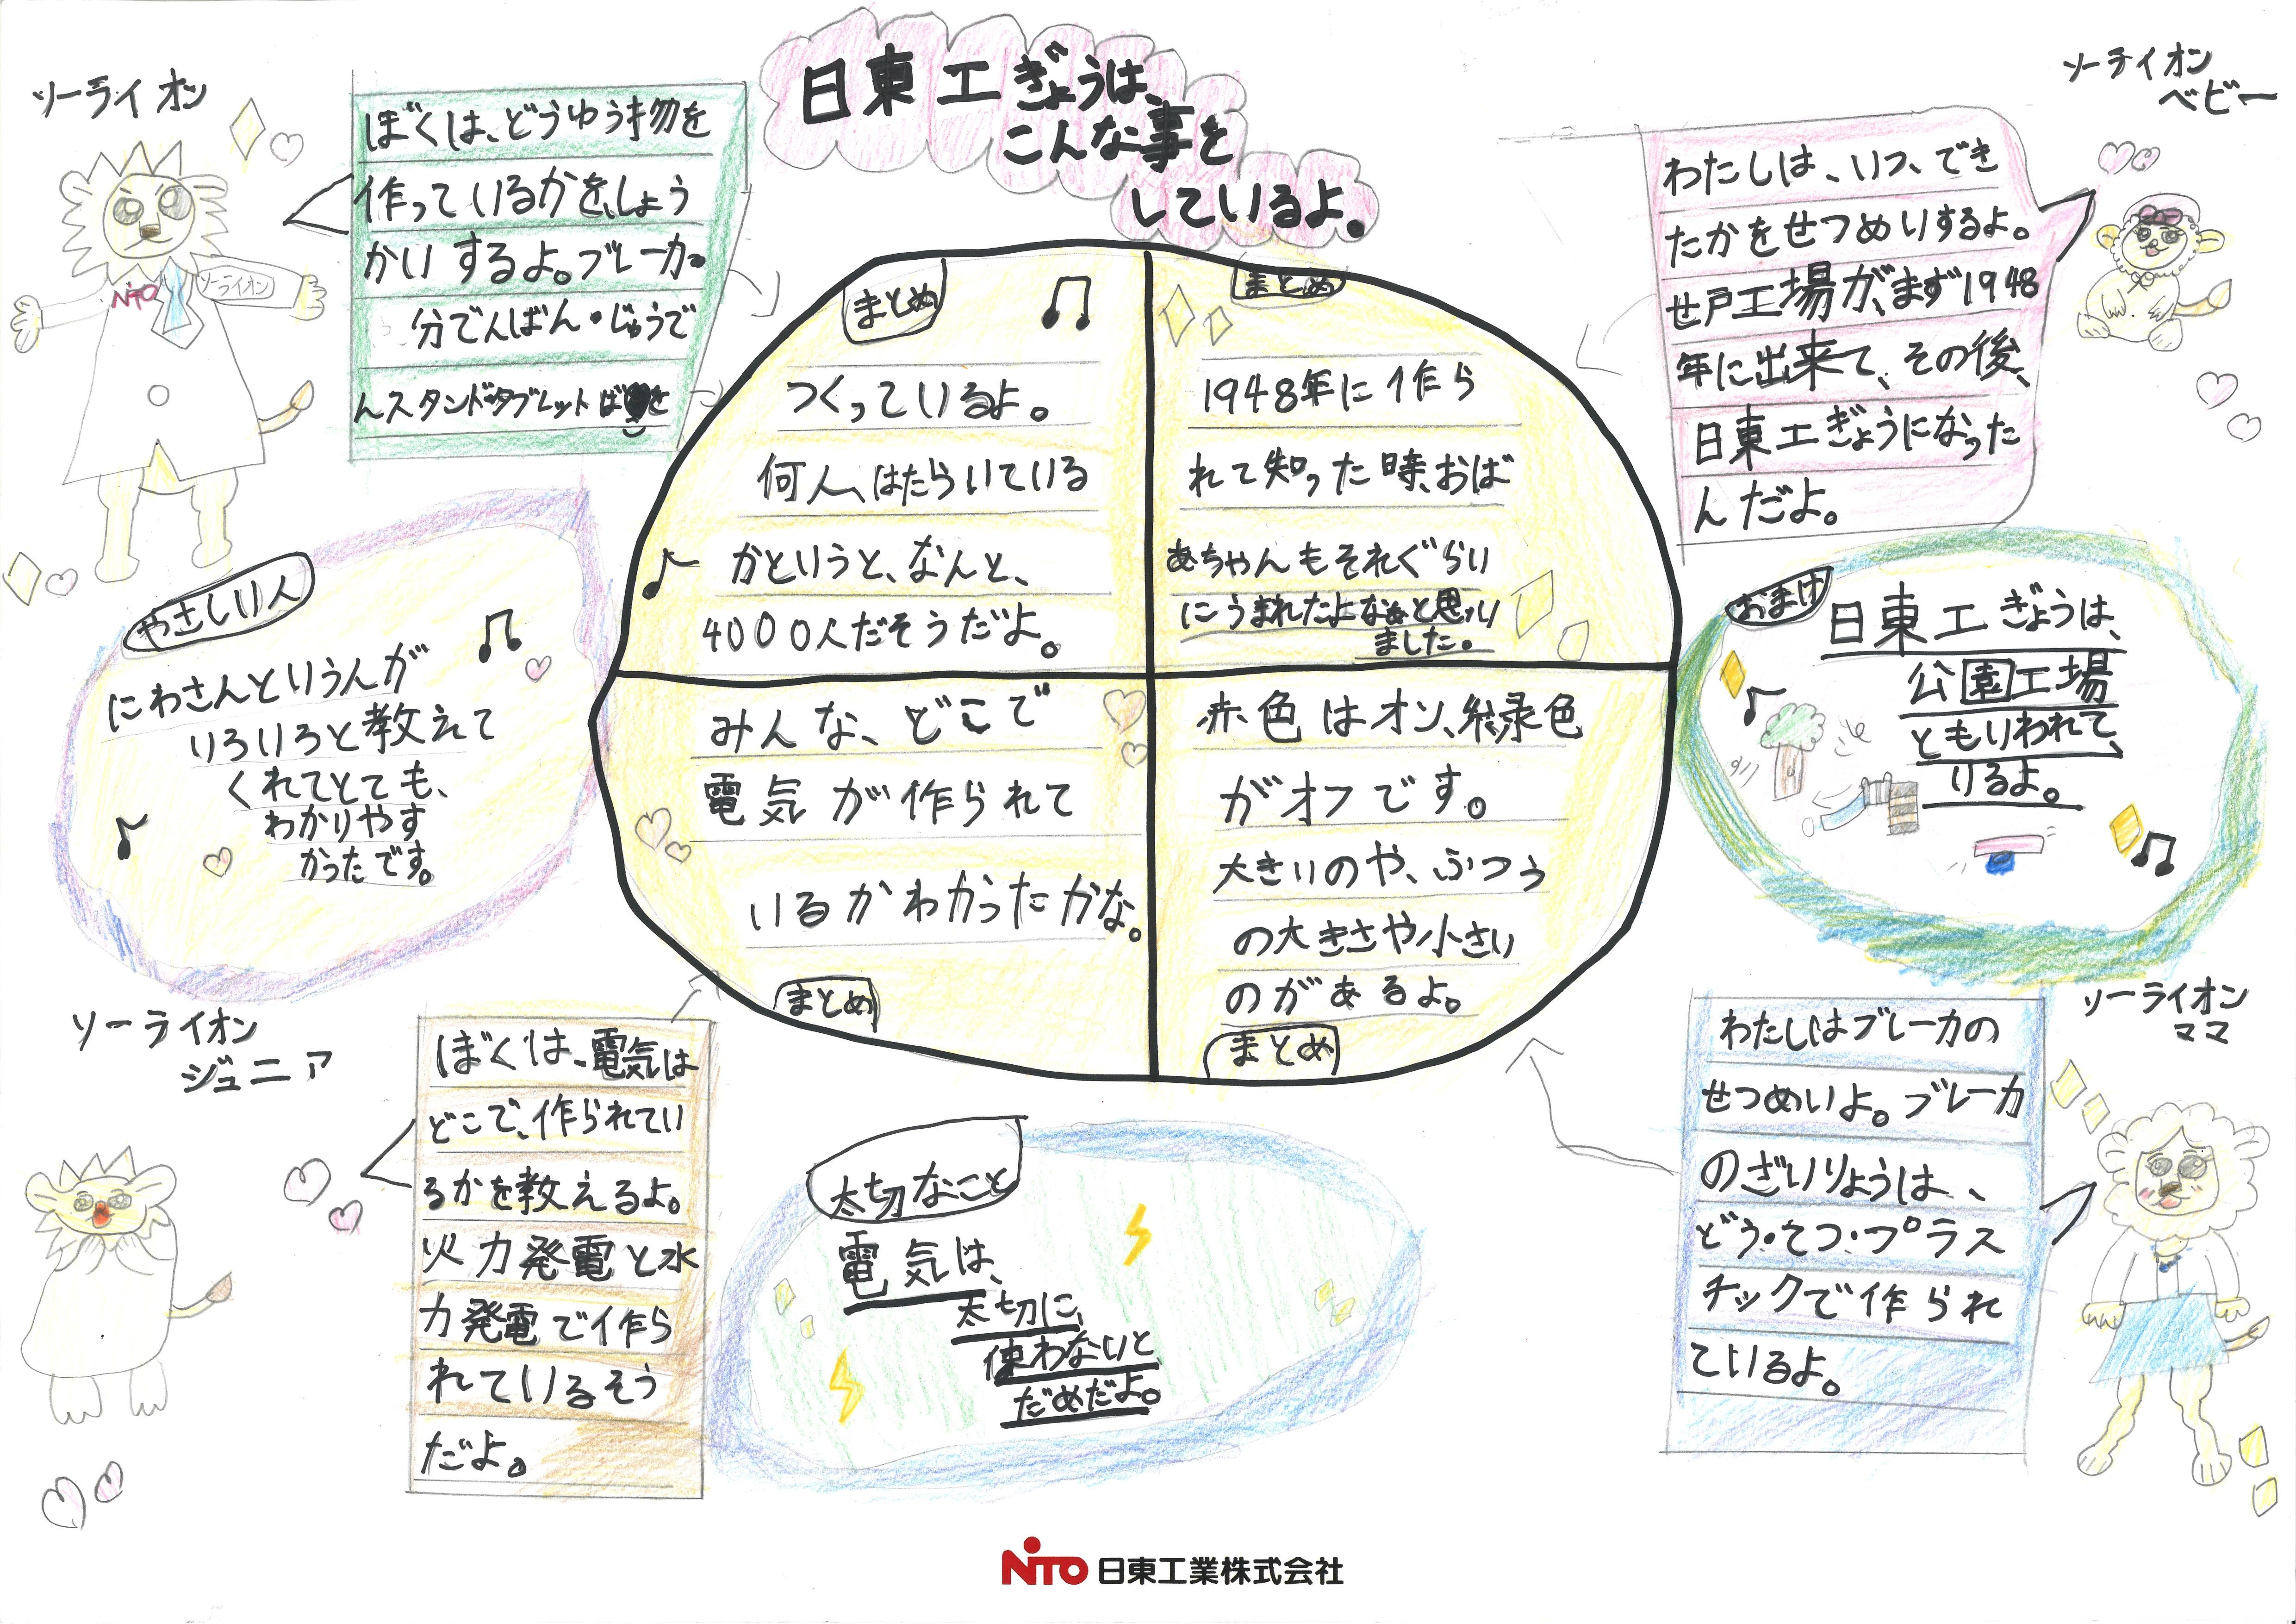 日東工ぎょうは、
こんな事を
しているよ。
ソーライオン
ぼくは、どうゆう物を
作っているかを、しょう
かいするよ。ブレーカ・
分でんばん・じゅうで
んスタンド・タブレットばを
NiTO
ソーライオン
まとめ
つくっているよ。
何人、はたらいている
かというと、なんと、
4000人だそうだよ。
まとめ
1948年に作ら
れて知った時、おば
あちゃんもそれぐらい
にうまれたよなぁと思い
ました。
ソーライオン
ベビー
わたしは、いつ、でき
たかをせつめいするよ。
せ戸工場が、まず1948
年に出来て、その後、
日東工ぎょうになった
んだよ。
やさしい人
にわさんという人が
いろいろと教えて
くれてとても、
わかりやす
かったです。
みんな、どこで
電気が作られて
いるかわかったかな。
まとめ
赤色はオン、緑色
がオフです。
大きいのや、ふつう
の大きさや小さい
のがあるよ。
まとめ
おまけ
日東工ぎょうは、
公園工場
ともいわれて、
いるよ。
ソーライオン
ジュニア
ぼくは、電気は
どこで、作られてい
るかを教えるよ。
火力発電と水
力発電で作ら
れているそう
だよ。
太切なこと
電気は、
太切に、
使わないと
だめだよ。
ソーライオン
ママ
わたしはブレーカの
せつめいよ。ブレーカ
のざいりょうは、
どう・てつ・プラス
チックで作られ
ているよ。
NiTO 日東工業株式会社